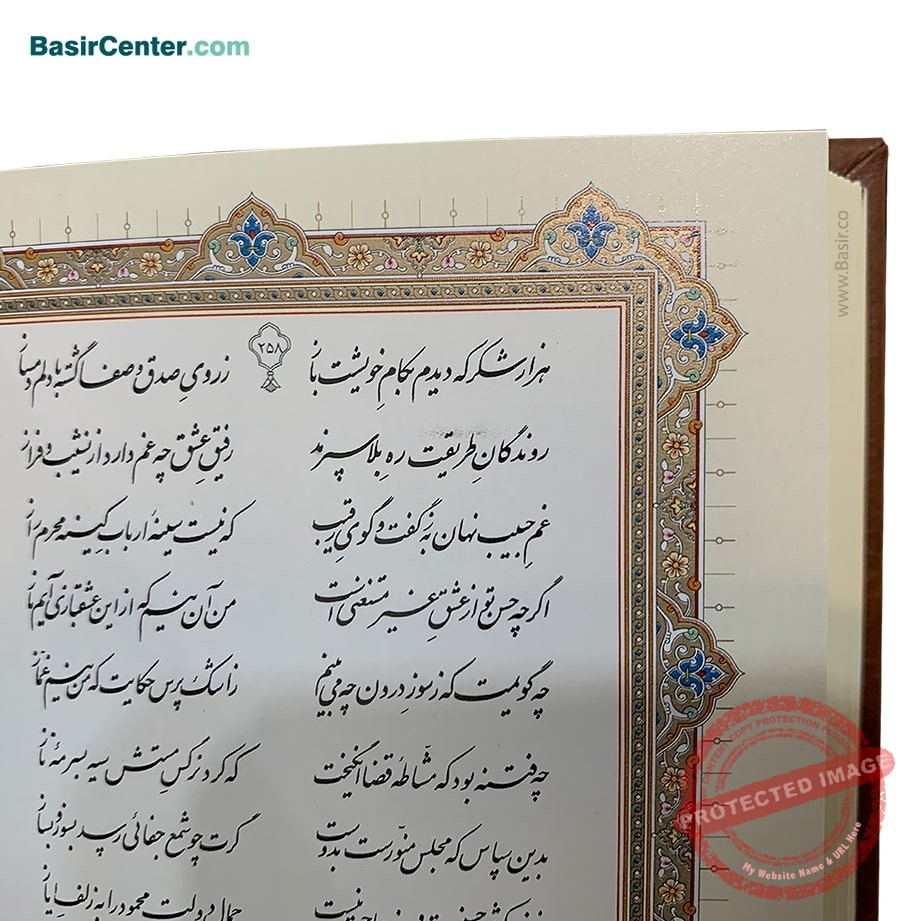 BasirCenter.com
www.Basir.co
۲۵۸
هزار شکر که دیدم بکامِ خویشت باز
ز رویِ صدق و صفا گشته با دلم دمساز
روندگانِ طریقت رهِ بلا سپرند
رفیقِ عشق چه غم دارد از نشیب و فراز
غمِ حبیب نهان به ز گفت و گوی رقیب
که نیست سینهٔ ارباب کینه محرم راز
اگرچه حسن تو از عشقِ غیر مستغنی است
من آن نیم که ازین عشقبازی آیم باز
چه گویمت که ز سوزِ درون چه می‌بینم
ز اشک پرس حکایت که من نیم غمّاز
چه فتنه بود که مشّاطهٔ قضا انگیخت
که کرد نرگسِ مستش سیه بسرمهٔ ناز
بدین سپاس که مجلس منوّرست بدوست
گرت چو شمع جفائی رسد بسوز و بساز
جمال دولت محمود را به زلف ایاز
PROTECTED IMAGE
My Website Name & URL Here